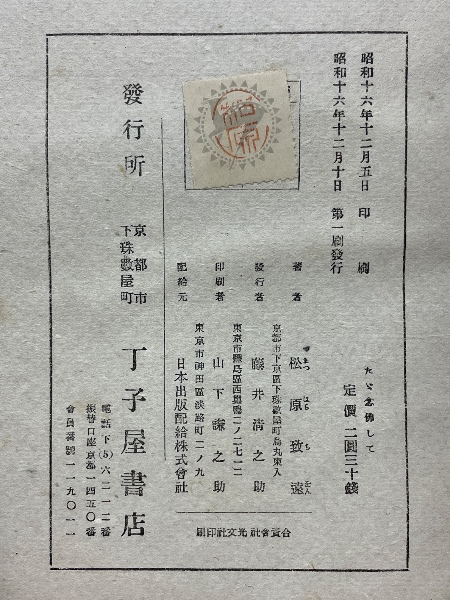 昭和十六年十二月五日 印刷
昭和十六年十二月十日 第一刷發行
たゞ念佛して
定價 二圓三十錢
京都市下京區下珠數屋町烏丸東入
著者 松原致遠
まつ ばら ち をん
東京市豐島區西巢鴨二ノ二七二二
發行者 藤井淸之助
印刷者 山下謙之助
東京市神田區淡路町二ノ九
配給元 日本出版配給株式會社
合資會社 光文社印刷
發行所 京都市下珠數屋町 丁子屋書店
電話下(5)六二一二番
振替口座京都一四五〇番
會員番號一一九〇一一
松原